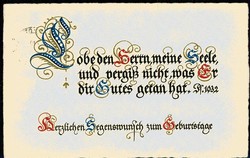 Lobe den Herrn, meine Seele,
und vergiß nicht, was Er
dir Gutes getan hat. Ps. 103,2
Herzlichen Segenswunsch zum Geburtstage